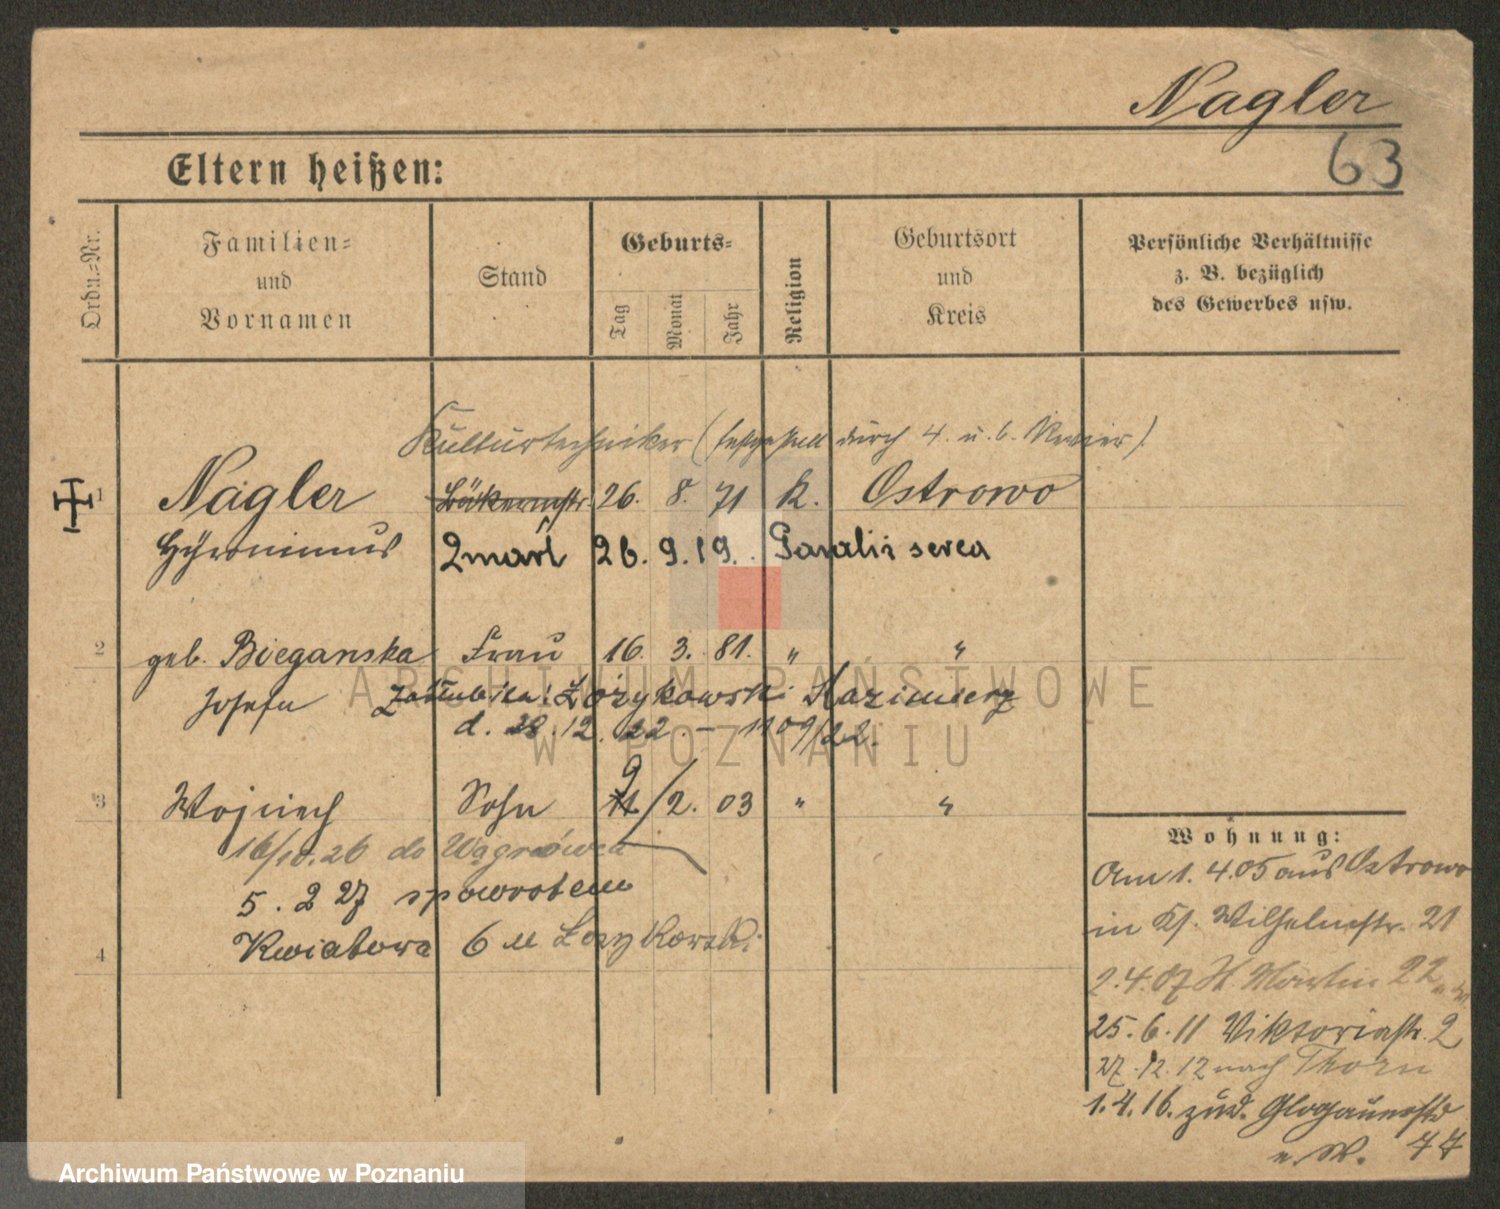 Nagler
63
Eltern heißen:
Ordn.-Nr.
Familien-
und
Vornamen
Stand
Geburts-
Tag
Monat
Jahr
Religion
Geburtsort
und
Kreis
Persönliche Verhältnisse
z. B. bezüglich
des Gewerbes usw.
Kulturtechniker (festgestellt durch 4. u. 6. Revier)
1 Nagler 26. 8. 71 K. Ostrowo
Hyronimus Zmarł 26. 9. 19.
2 geb. Bieganska Frau 16. 3. 81. " "
Josefa Zaślubiła: Łożykowski Kazimierz
d. 28. 12. 22. – 1109/22.
9
3 Wojciech Sohn 11. / 2. 03 " "
16/10.26 do Wągrówca
5. 2 27 spowrotem
4 Kwiatowa 6 u Łozykowski
Wohnung:
Am 1. 4. 05 aus Ostrowo
in Kj. Wilhelmstr. 21
2.4.07 St. Martin 22
25.6.11 Viktoriastr. 2
27.12.12 nach Thorn
1.4.16. zud. Glogauerstr
n. W. 77
ARCHIWUM PAŃSTWOWE
W POZNANIU
Archiwum Państwowe w Poznaniu